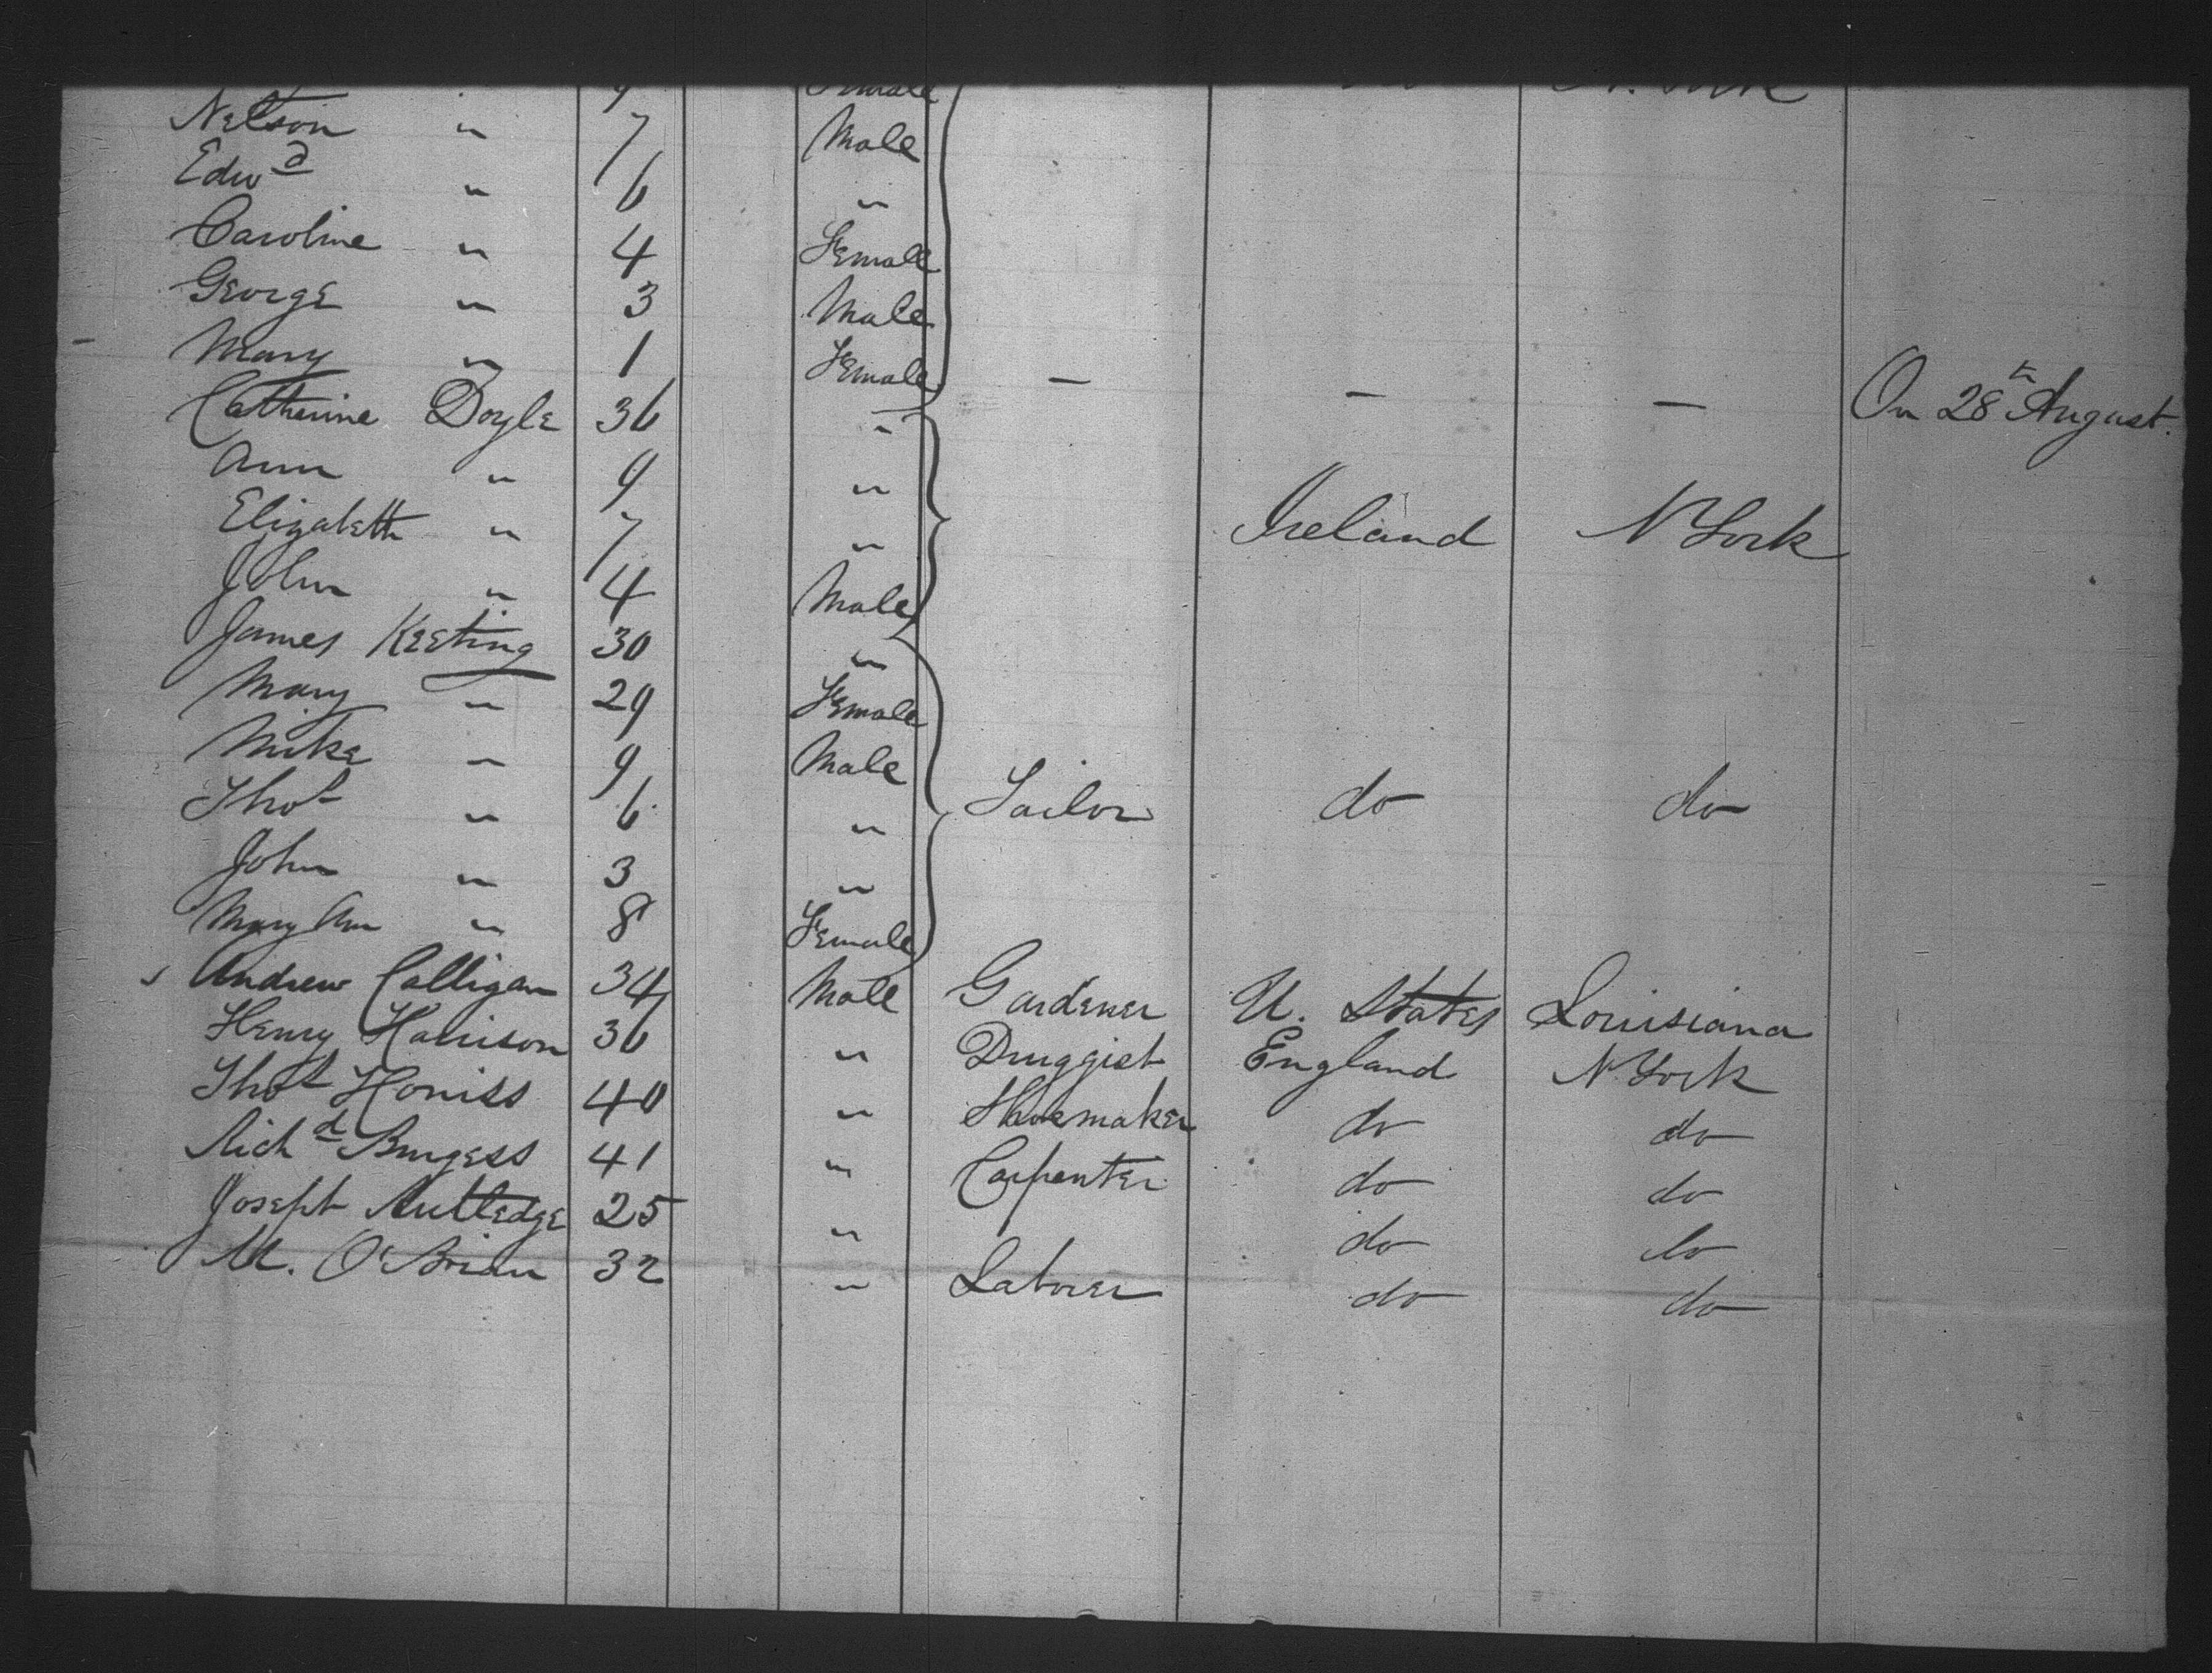 9 Female N. York
Nelson " 7 Male
Edwd " 6 "
Caroline " 4 Female
George " 3 Male
Mary " 1 Female — — — On 28th August.
Catherine Doyle 36 "
Ann " 9 "
Elizabeth " 7 " Ireland N York
John " 4 Male
James Keeting 30 "
Mary " 29 Female
Mike " 9 Male
Thos " 6 " Sailor do do
John " 3 "
Mary Ann " 8 Female
Andrew Calligan 34 Male Gardener U. States Louisiana
Henry Harrison 36 " Druggist England N. York
Thos Honiss 40 " Shoemaker do do
Richd Burgess 41 " Carpenter do do
Joseph Rutledge 25 " do do
M. O'Brian 32 " Laborer do do